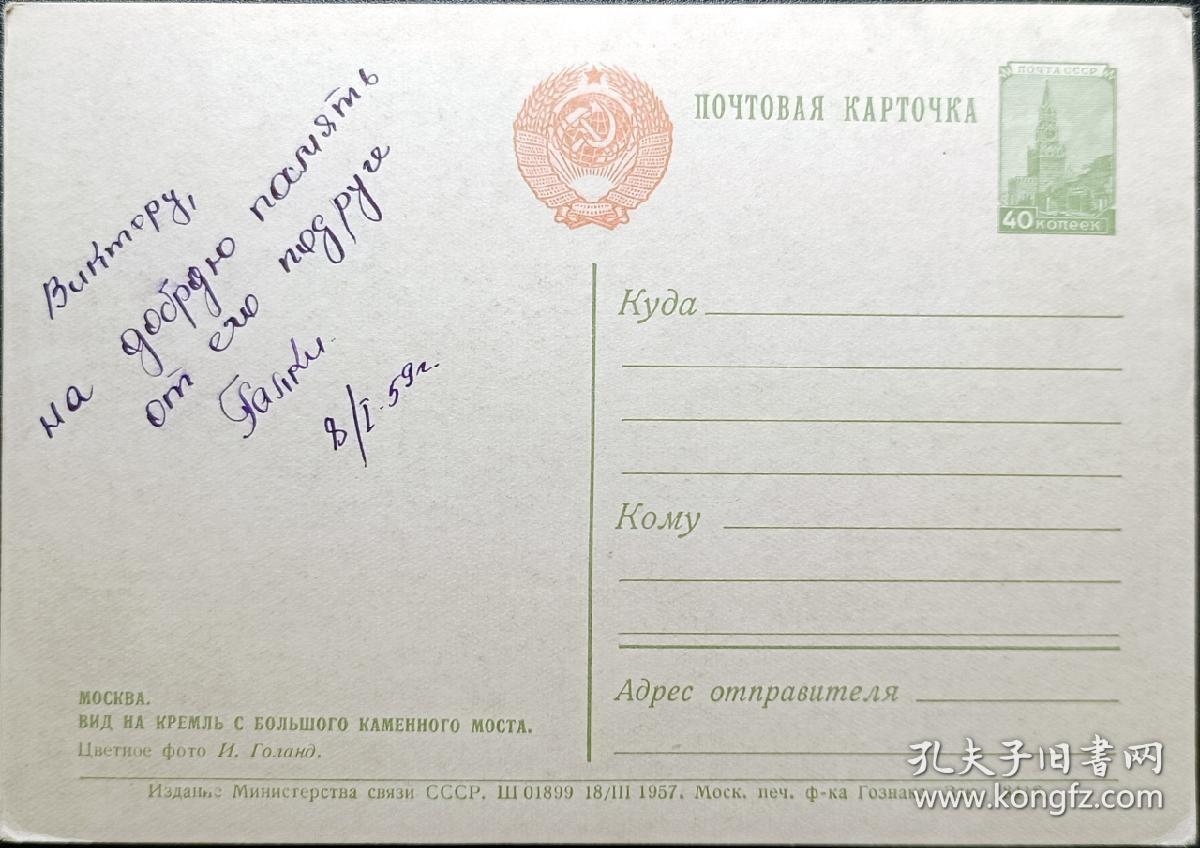 Виктору,
на добрую память
от его подруги
Галки.
8/I-59г.
ПОЧТОВАЯ КАРТОЧКА
ПОЧТА СССР
40 копеек
Куда
Кому
Адрес отправителя
МОСКВА.
ВИД НА КРЕМЛЬ С БОЛЬШОГО КАМЕННОГО МОСТА.
Цветное фото И. Голанд.
Издание Министерства связи СССР. Ш 01899 18/III 1957. Моск. печ. ф-ка Гознака.
孔夫子旧书网
www.kongfz.com